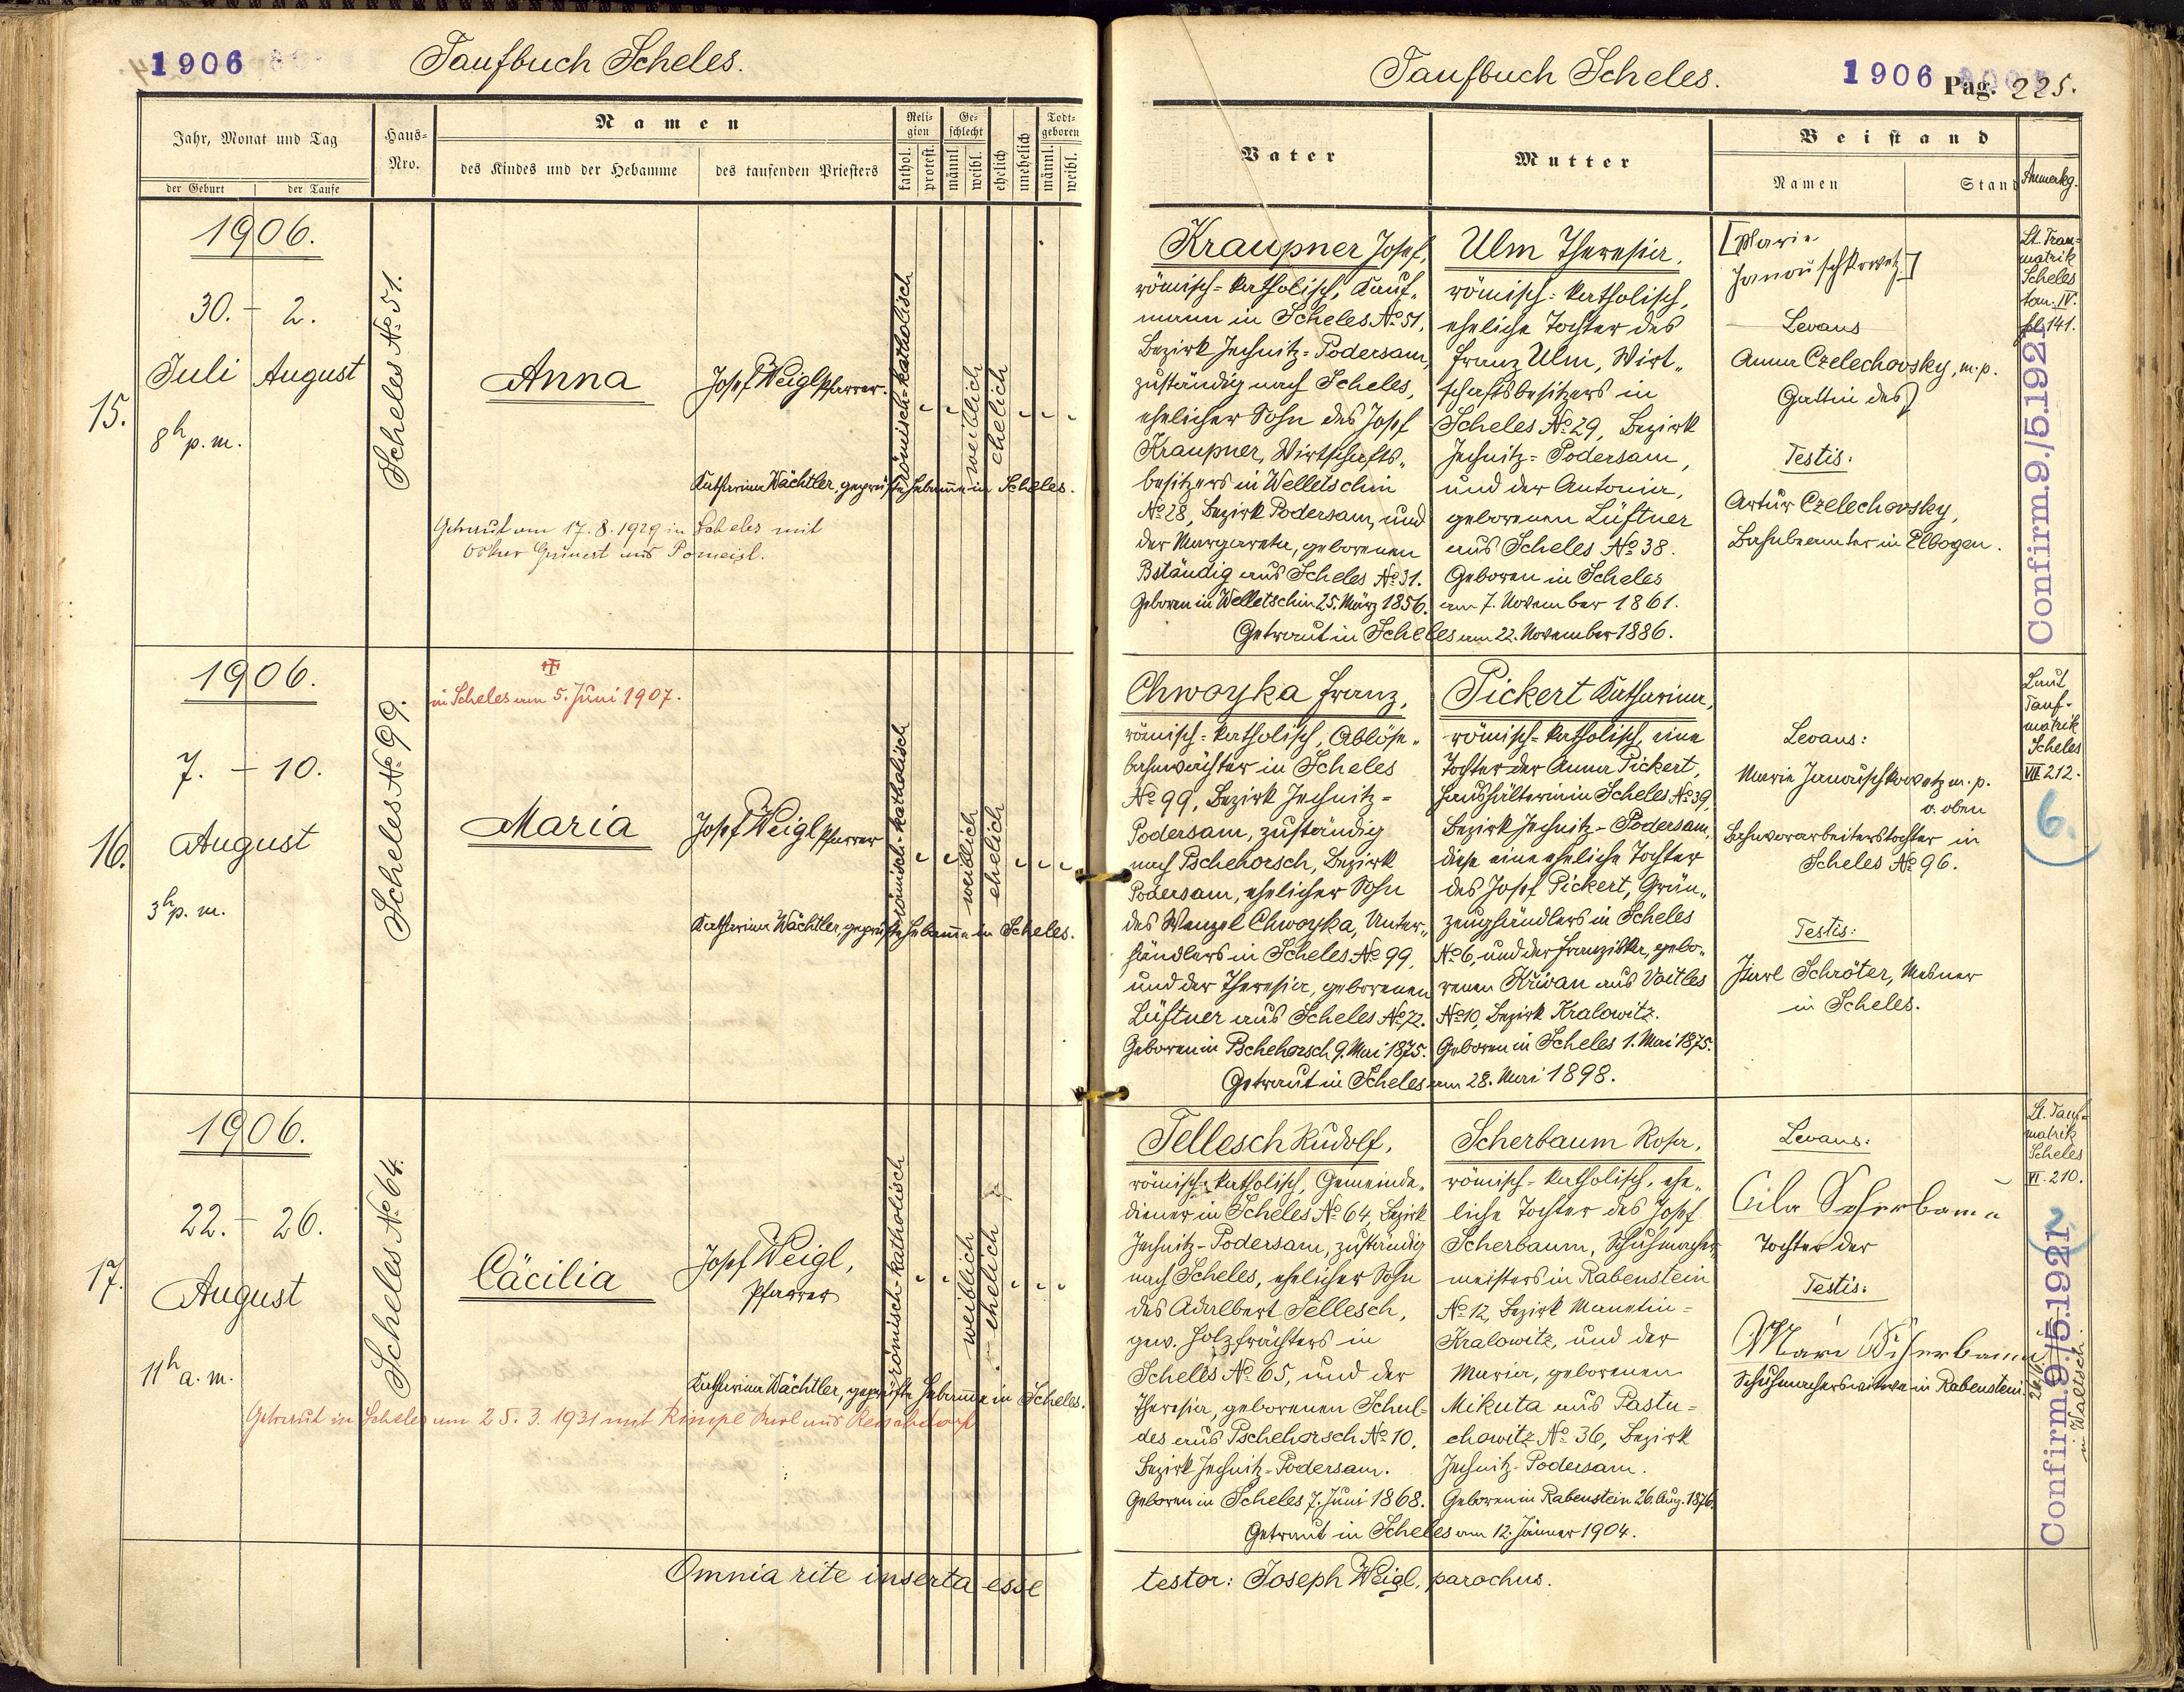 1906
Taufbuch Scheles.
Jahr, Monat und Tag
der Geburt
der Taufe
Haus-
Nro.
Namen
des Kindes und der Hebamme
des taufenden Priesters
Reli-
gion
kathol.
protest.
Ge-
schlecht
männl.
weibl.
ehelich
unehelich
Todt-
geboren
männl.
weibl.
15.
1906.
30. - 2.
Juli August
8h p. m.
Scheles No. 51.
Anna
Josef Weigl Pfarrer.
römisch-katholisch
weiblich
ehelich
Katharina Wächtler, geprüfte Hebamme in Scheles.
Getraut am 17.8.1929 in Scheles mit
Grünert aus Pomeisl.
16.
1906.
7. - 10.
August
3h p. m.
Scheles No. 99.
in Scheles am 5. Juni 1907.
Maria
Josef Weigl Pfarrer
römisch-katholisch
weiblich
ehelich
Katharina Wächtler, geprüfte Hebamme in Scheles.
17.
1906.
22. - 26.
August
11h a. m.
Scheles No. 64.
Cäcilia
Josef Weigl,
Pfarrer
römisch-katholisch
weiblich
ehelich
Katharina Wächtler, geprüfte Hebamme in Scheles.
Getraut in Scheles am 25.3.1931 mit Rimpl Karl aus Reischdorf
Omnia rite inserta esse
Taufbuch Scheles.
1906
Pag. 225.
Vater
Mutter
Beistand
Namen
Stand
Anmerkg.
Kraupner Josef,
römisch-katholisch, Kauf-
mann in Scheles No. 51,
Bezirk Jechnitz-Podersam,
zuständig nach Scheles,
ehelicher Sohn des Josef
Kraupner, Wirtschafts-
besitzers in Welletschin
No. 28, Bezirk Podersam, und
der Margareta, geborenen
Bständig aus Scheles No. 31.
Geboren in Welletschin 25. März 1856.
Ulm Theresia,
römisch-katholisch,
eheliche Tochter des
Franz Ulm, Wirt-
schaftsbesitzers in
Scheles No. 29, Bezirk
Jechnitz-Podersam,
und der Antonia,
geborenen Lüftner
aus Scheles No. 38.
Geboren in Scheles
am 7. November 1861.
Getraut in Scheles am 22. November 1886.
[Marie
Janouschkowetz]
Levans
Anna Czelechovsky, m.p.
Gattin des
Testis:
Artur Czelechovsky,
Bahnbeamter in Elbogen.
Lt. Trau-
matrik
Scheles
tom. IV.
fol. 141.
Confirm. 9./5.1921
Chwoyka Franz,
römisch-katholisch, Ablöse-
bahnwächter in Scheles
No. 99, Bezirk Jechnitz-
Podersam, zuständig
nach Pschehorsch, Bezirk
Podersam, ehelicher Sohn
des Wenzel Chwoyka, Unter-
händlers in Scheles No. 99,
und der Theresia, geborenen
Lüftner aus Scheles No. 72.
Geboren in Pschehorsch 9. Mai 1875.
Pickert Katharina,
römisch-katholisch, eine
Tochter der Anna Pickert,
Haushälterin in Scheles No. 39,
Bezirk Jechnitz-Podersam,
diese eine eheliche Tochter
des Josef Pickert, Grün-
zeughändlers in Scheles
No. 6, und der Franziska, gebo-
renen Křivan aus Voitles
No. 10, Bezirk Kralowitz.
Geboren in Scheles 1. Mai 1875.
Getraut in Scheles am 28. Mai 1898.
Levans:
Marie Janouschkowetz m. p.
v. oben
Bahnvorarbeiterstochter in
Scheles No. 96.
Testis:
Karl Schröter, Mesner
in Scheles.
Laut
Tauf-
matrik
Scheles
VII 212.
6.
Tellesch Rudolf,
römisch-katholisch, Gemeinde-
diener in Scheles No. 64, Bezirk
Jechnitz-Podersam, zuständig
nach Scheles, ehelicher Sohn
des Adalbert Tellesch,
gew. Holzfrächters in
Scheles No. 65, und der
Theresia, geborenen Schul-
des aus Pschehorsch No. 10,
Bezirk Jechnitz-Podersam.
Geboren in Scheles 7. Juni 1868.
Scherbaum Rosa,
römisch-katholisch, ehe-
liche Tochter des Josef
Scherbaum, Schuhmacher-
meisters in Rabenstein
No. 12, Bezirk Manetin-
Kralowitz, und der
Maria, geborenen
Mikuta aus Pastu-
chowitz No. 36, Bezirk
Jechnitz-Podersam.
Geboren in Rabenstein 26. Aug. 1876.
Getraut in Scheles am 12. Jänner 1904.
Levans:
Cila Scherbaum
Tochter der
Testis:
Mari Scherbaum
Schuhmacherswitwe in Rabenstein.
Lt. Tauf-
matrik
Scheles
VI. 210.
2.
Confirm. 9./5.1921
in Waltsch.
testor: Joseph Weigl, parochus.